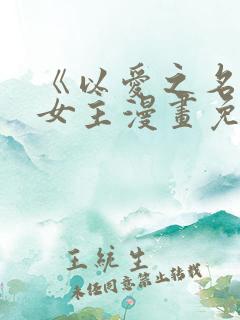 《以爱之名
女王漫畫免
王統生
未经同意禁止转载